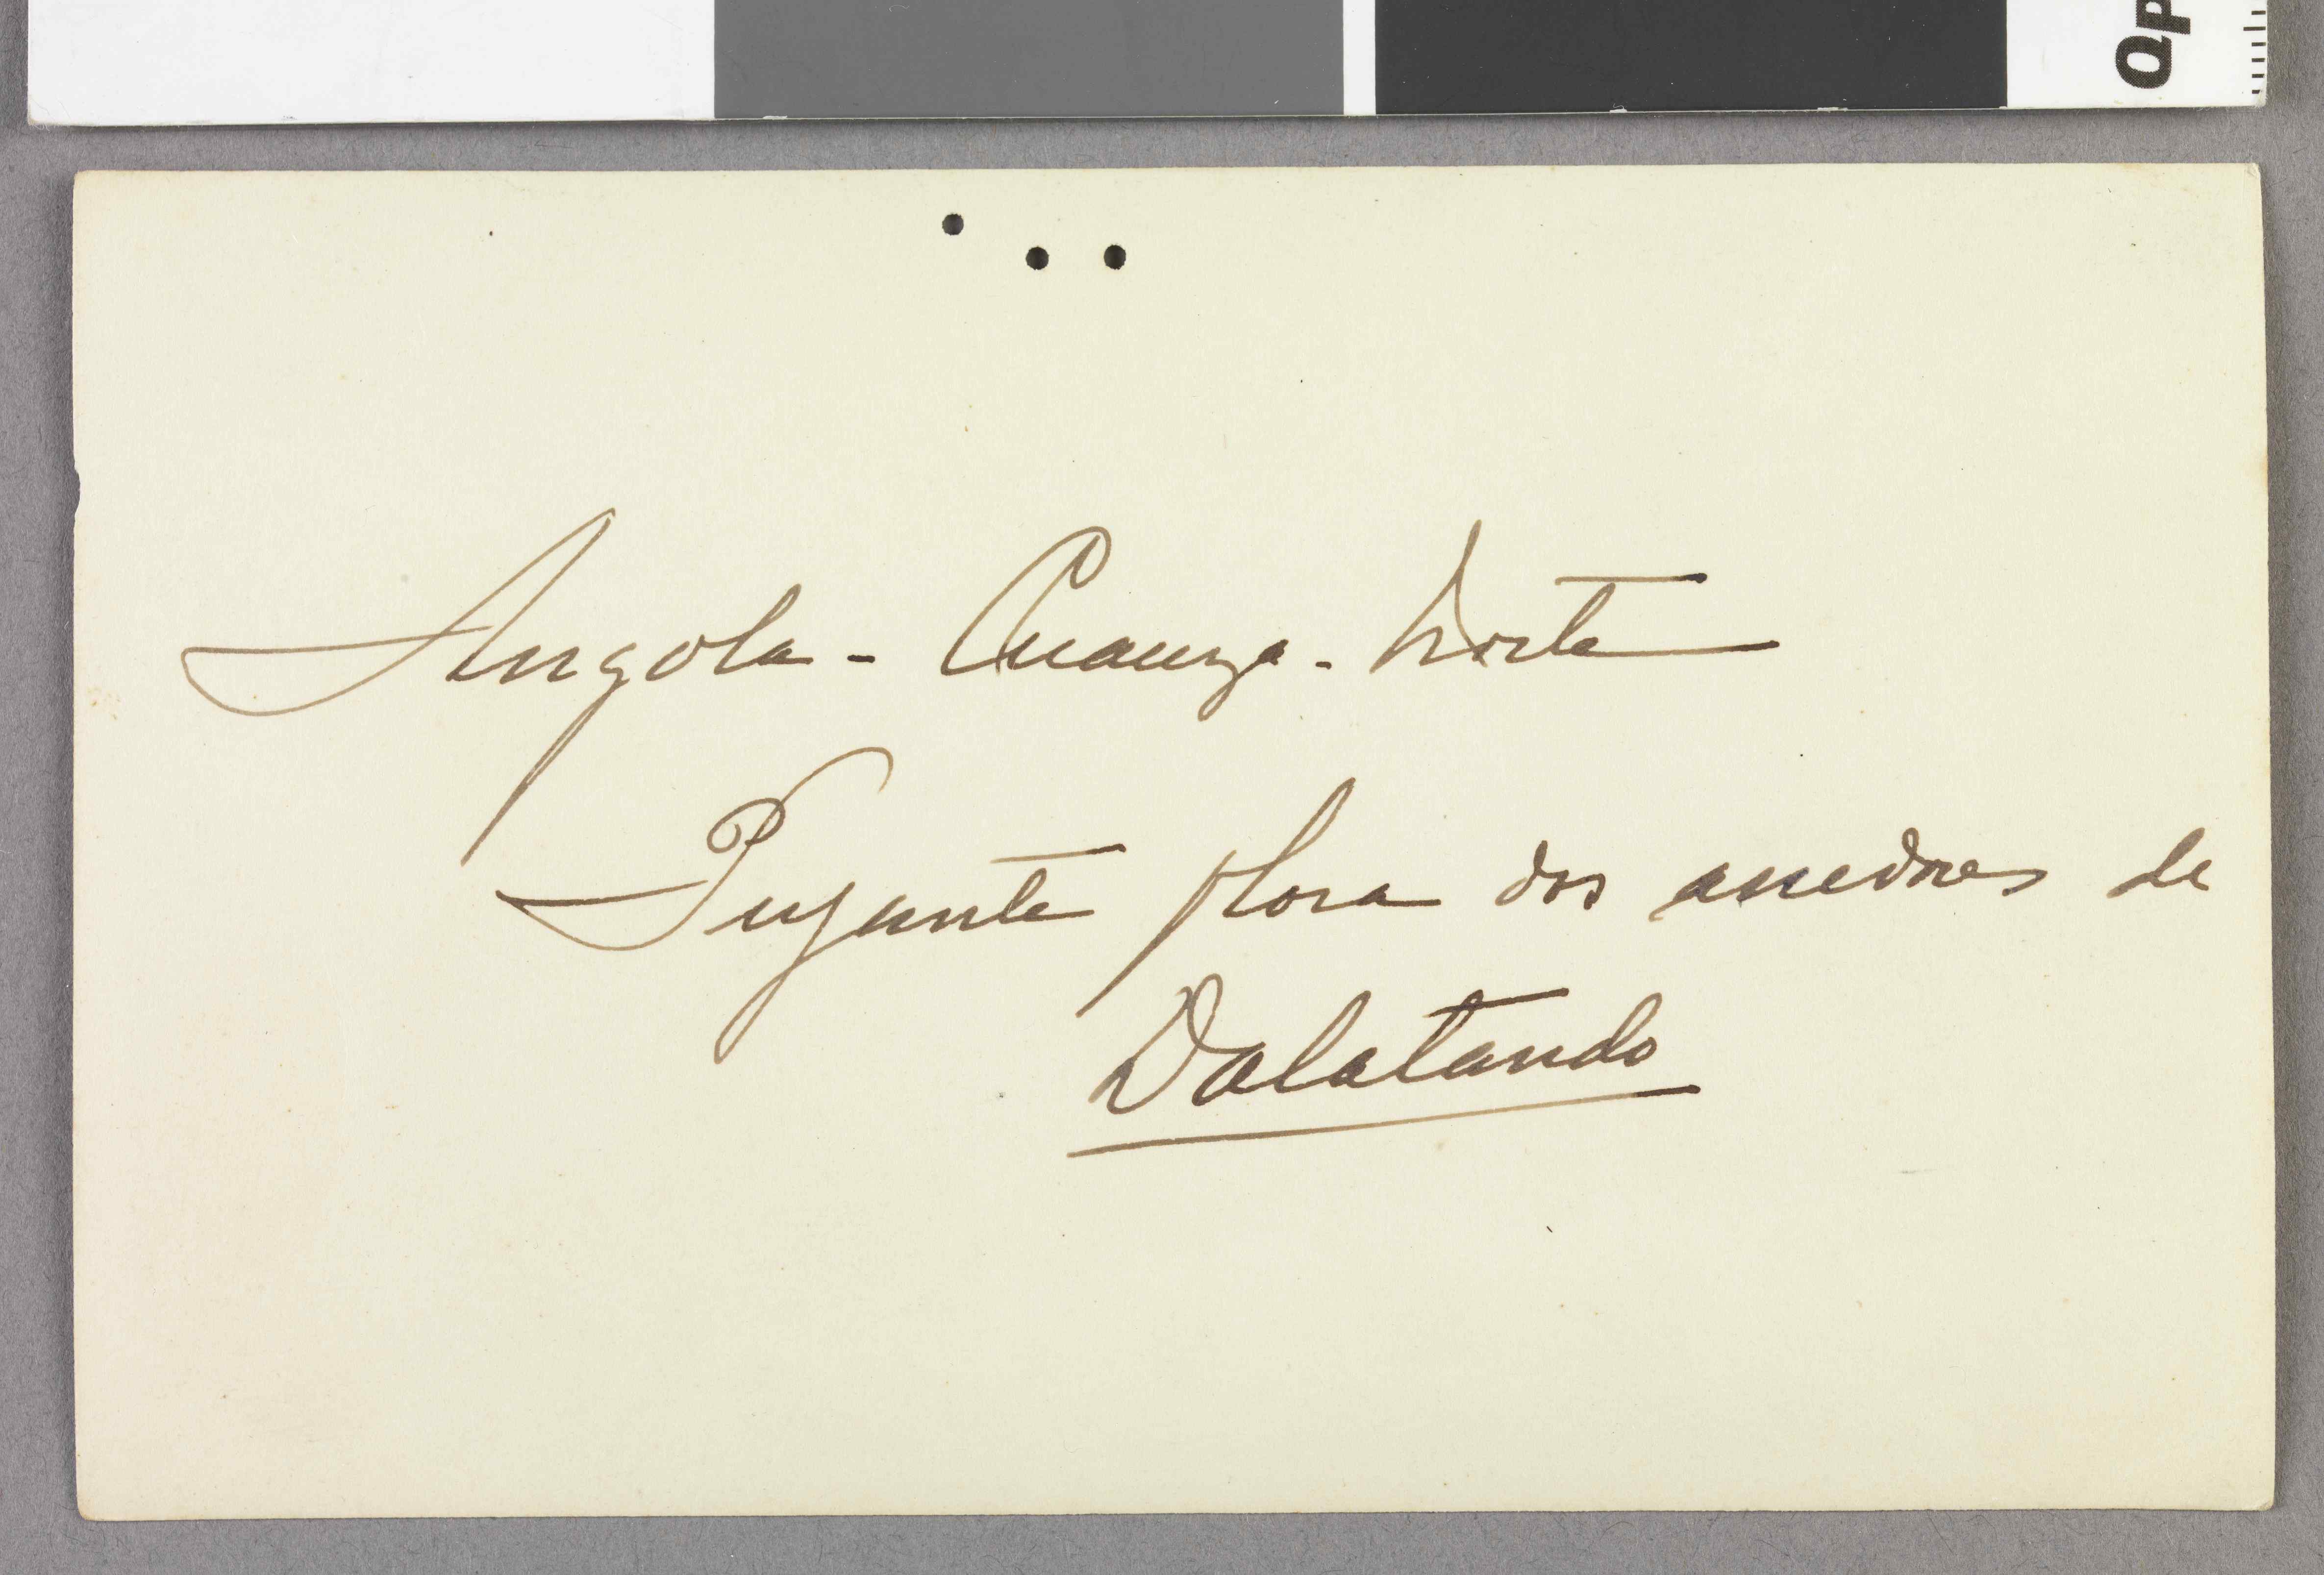 Qp
Angola - Cuanza - Norte
Pujante flora dos arredores de
Dalatando